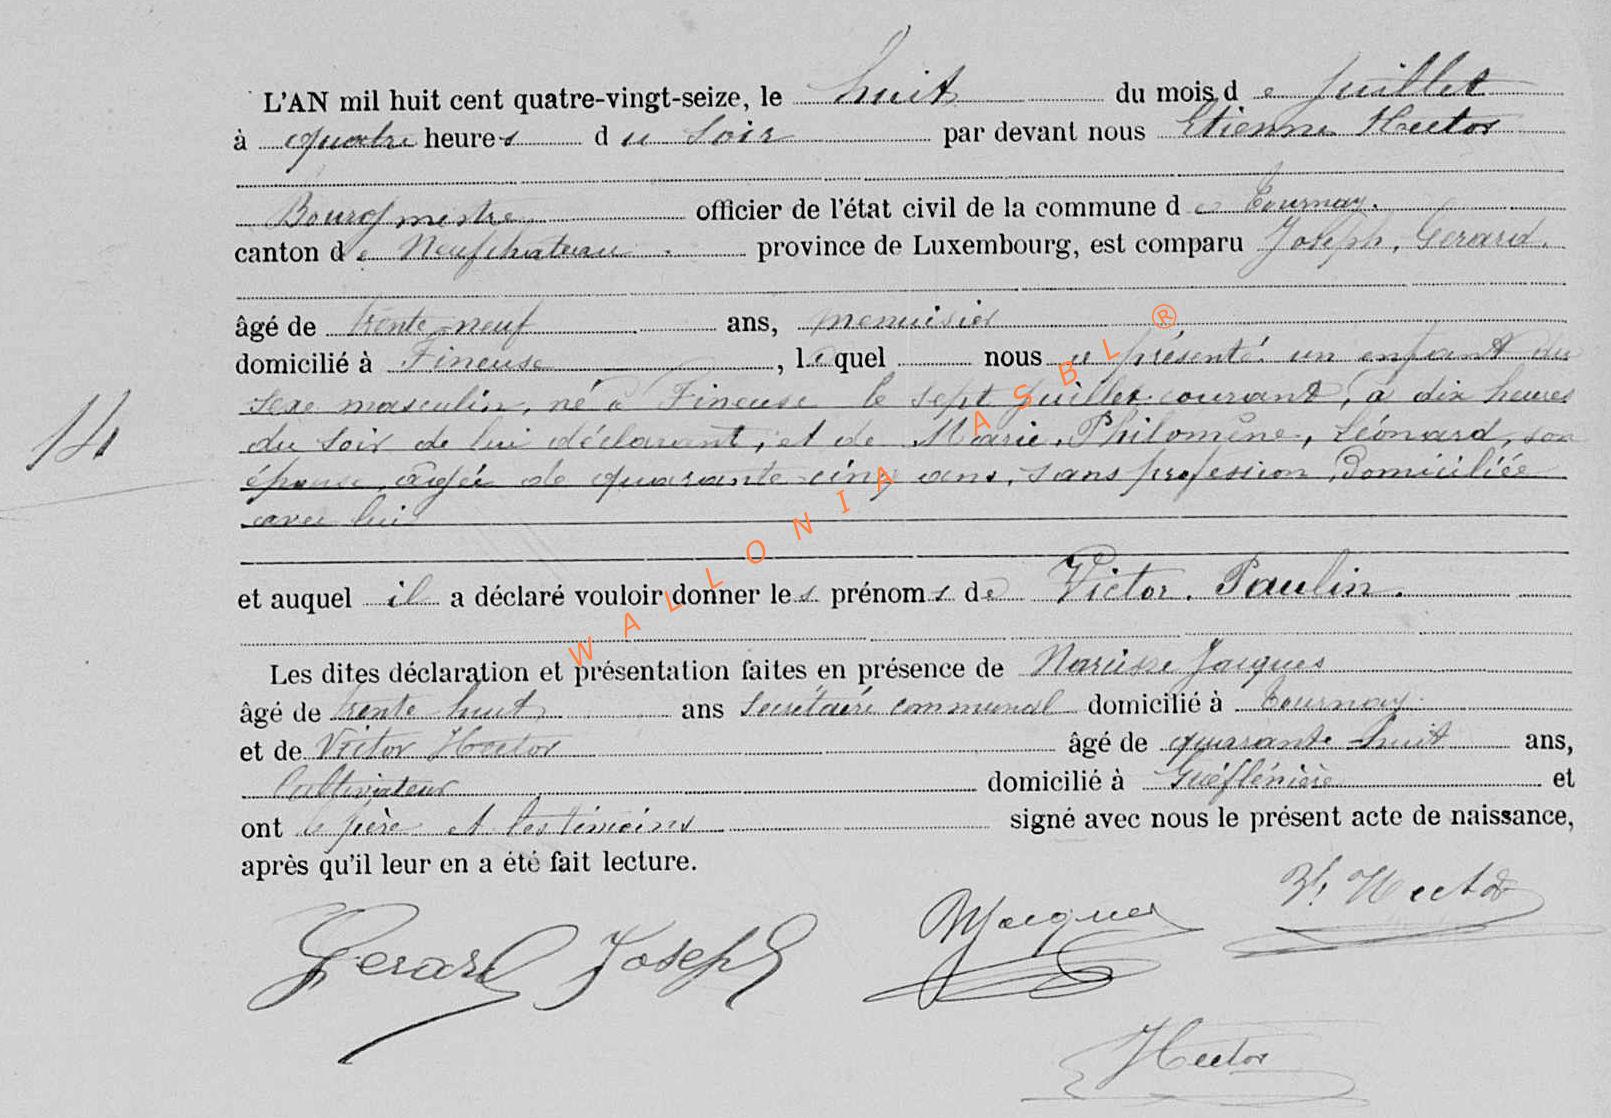 L'AN mil huit cent quatre-vingt-seize, le huit du mois de Juillet
à quatre heures du Soir par devant nous Etienne Hector
Bourgmestre officier de l'état civil de la commune de Tournay.
canton de Neufchateau province de Luxembourg, est comparu Joseph, Gerard.
âgé de trente-neuf ans, menuisier
domicilié à Fineuse, lequel nous a présenté un enfant du
sexe masculin, né à Fineuse le sept Juillet courant, à dix heures
du soir de lui déclarant, et de Marie, Philomène, Léonard, son
épouse, âgée de quarante-cinq ans, sans profession, domiciliée
avec lui
14
et auquel il a déclaré vouloir donner les prénoms de Victor. Paulin.
Les dites déclaration et présentation faites en présence de Narcisse Jacques
âgé de trente huit ans Secrétaire communal domicilié à Tournay.
et de Victor Hector âgé de quarante-huit ans,
Cultivateur domicilié à et
ont le père et les témoins signé avec nous le présent acte de naissance,
après qu'il leur en a été fait lecture.
Gerard Joseph
NJacques
Vr Hector
Hector
WALLONIA ASBL ®